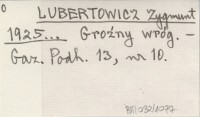 0
LUBERTOWICZ Zygmunt
1925... Groźny wróg. –
Gaz. Podh. 13, nr 10.